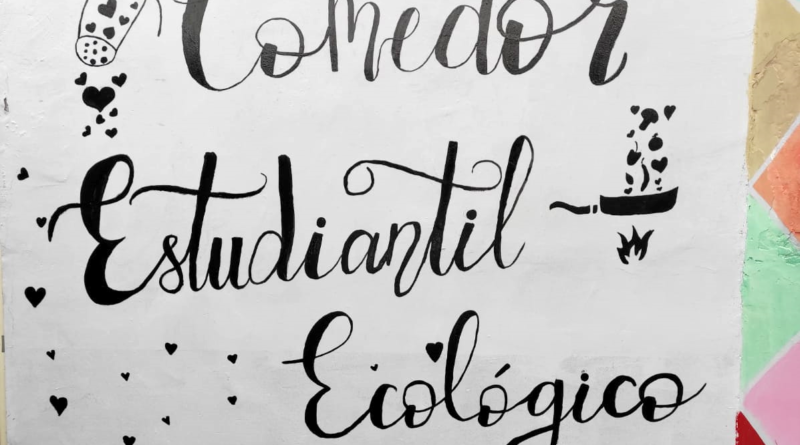 Comedor
Estudiantil
Ecológico